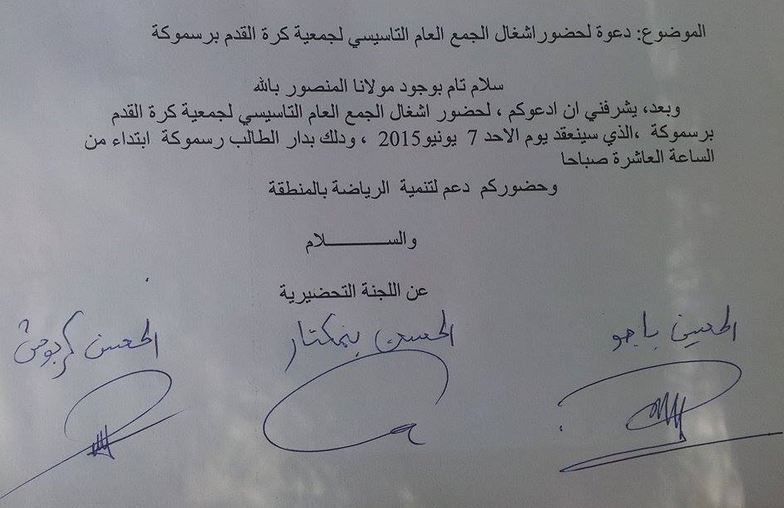 الموضوع: دعوة لحضور اشغال الجمع العام التاسيسي لجمعية كرة القدم برسموكة
سلام تام بوجود مولانا المنصور بالله
وبعد، يشرفني ان ادعوكم ، لحضور اشغال الجمع العام التاسيسي لجمعية كرة القدم
برسموكة ،الذي سينعقد يوم الاحد 7 يونيو2015 ، ودلك بدار الطالب رسموكة ابتداء من
الساعة العاشرة صباحا
وحضوركم دعم لتنمية الرياضة بالمنطقة
والســــــــــلام
عن اللجنة التحضيرية
الحسين باجو الحسين بنمكتار الحسن